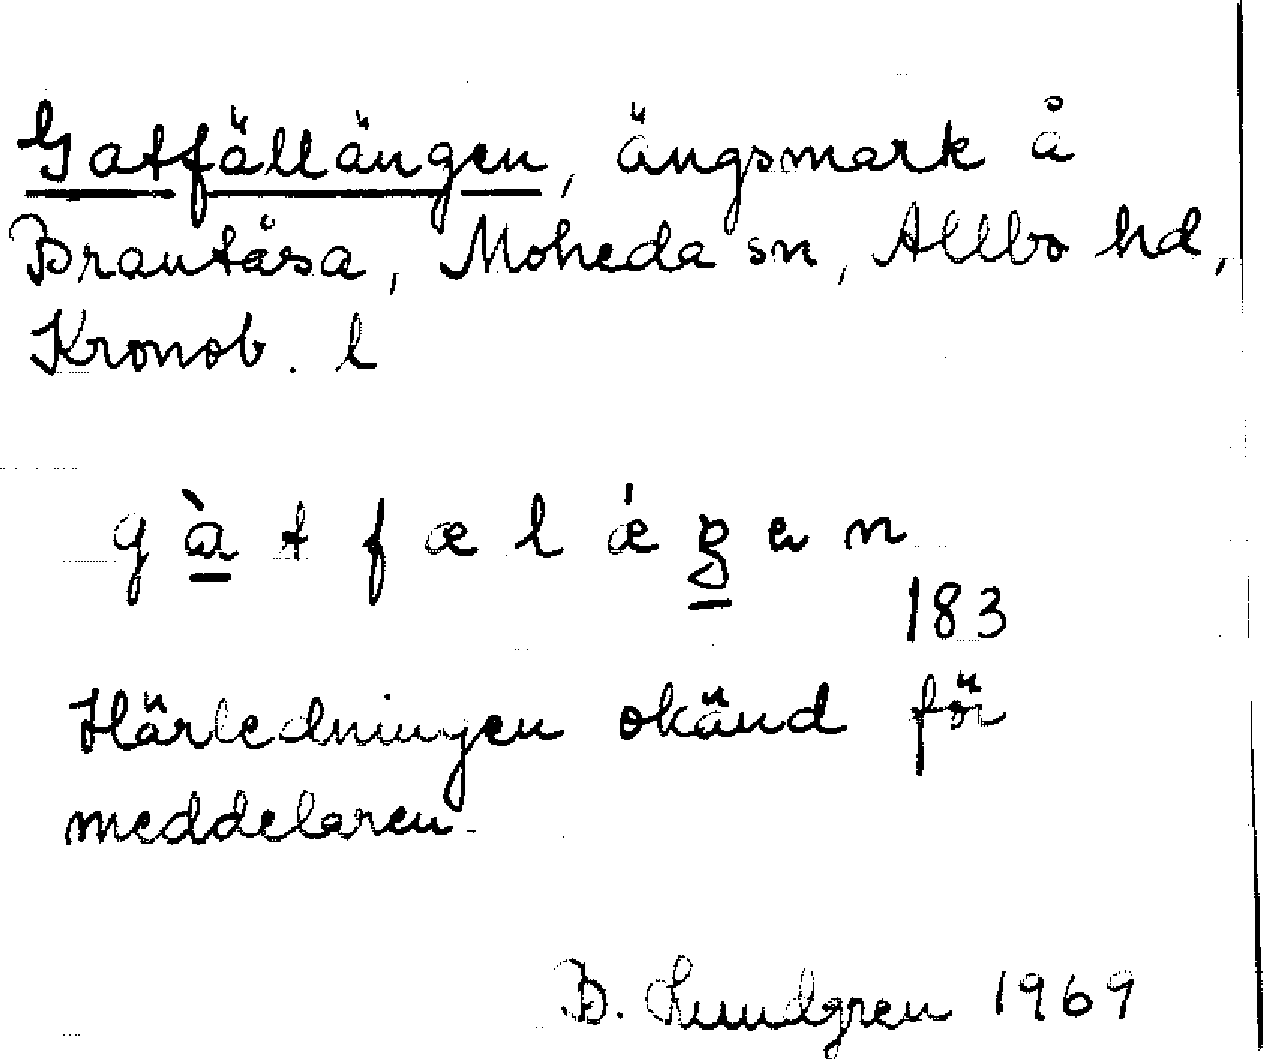 Gatfällängen, ängsmark å
Brantåsa, Moheda sn, Allbo hd,
Kronob. l
g à t f æ l ǽ n
183
Härledningen okänd för
meddelaren.
B. Lundgren 1969